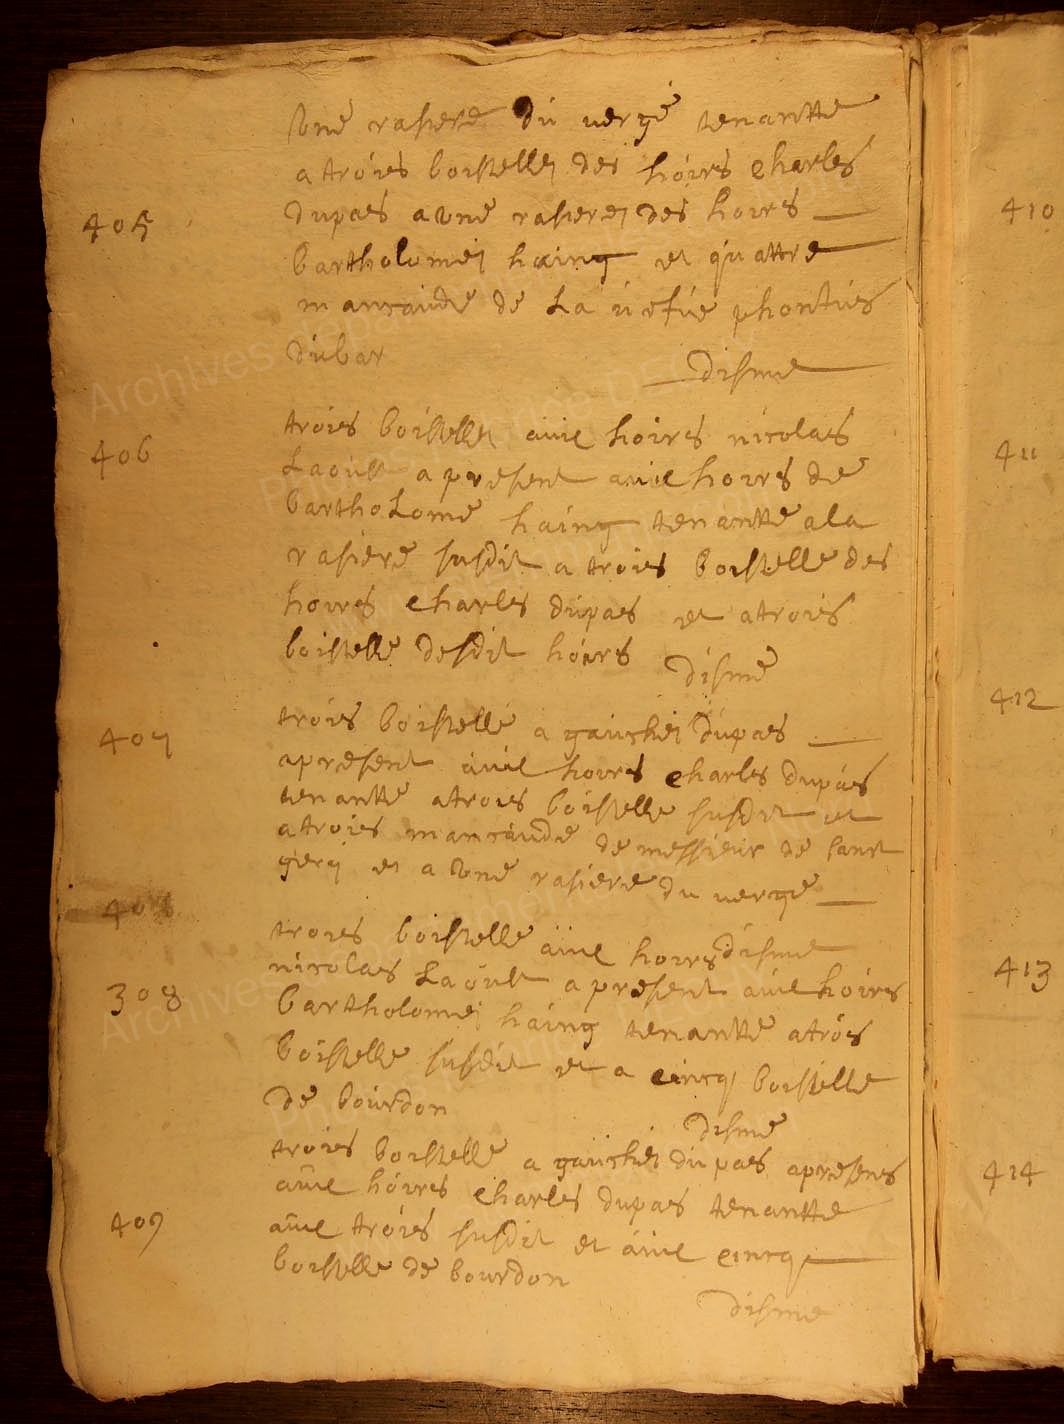 une rasiere du vergé tenantte
a troies boistelle des hoirs Charles
405
dupaes a une rasiere des hoirs
bartholomé haing et quattre
mancaude de La vefue phontius
dubar disme
406
troies boistelle auıe hoires nicolaes
Laoult a present auıe hoirs de
bartholomé haing tenantte a la
rasiere susdit a troies boistelle des
hoires Charles dupaes et a troies
boistelle desdit hoirs disme
407
troies boistelle a gauchei dupaes
apresent auıe hoirs Charles dupaes
tenantte a troies boistelle susdit et
a troies mancaude de messieur de sainct
gery et a une rasiere du vergé
408
disme
troies boistelle auıe hoirs
308
nicolaes Laoult apresent auıe hoires
bartholomei haing tenantte a troies
boistelle susdit et a cincq boistelle
de bourdon
disme
troies boistelle a gauchei dupaes apresens
auıe hoires Charles dupaes tenantte
409
auıe troies susdit et auıe cincq
boistelle de bourdon
disme
410
411
412
413
414
Archives départementales du Nord